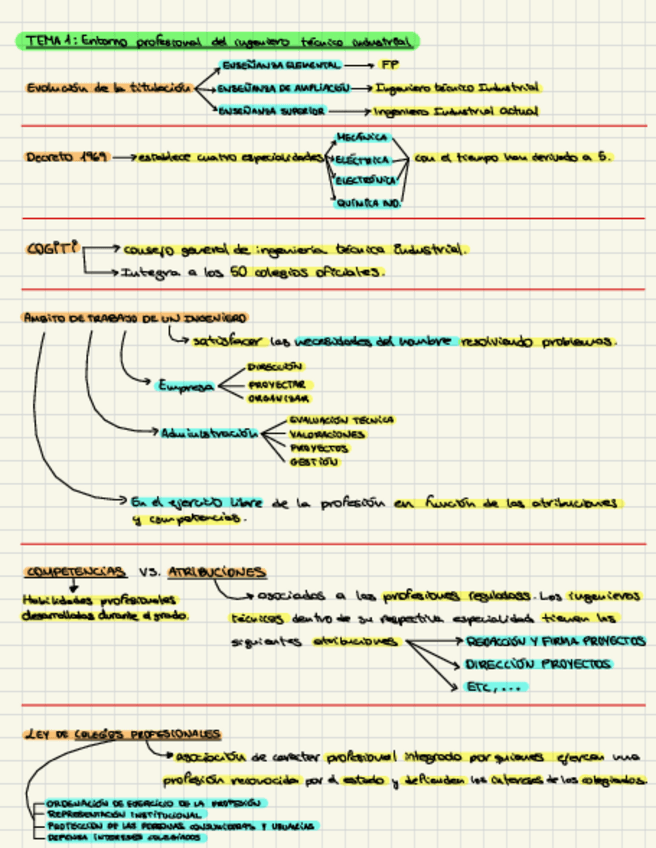 TEMA 1: Entorno profesional del ingeniero técnico industrial
ENSEÑANZA ELEMENTAL → FP
Evolución de la titulación → ENSEÑANZA DE AMPLIACIÓN → Ingeniero técnico Industrial
ENSEÑANZA SUPERIOR → Ingeniero Industrial actual
MECÁNICA
Decreto 1969 → establece cuatro especialidades ELÉCTRICA con el tiempo han derivado a 5.
ELECTRÓNICA
QUÍMICA IND.
COGITI → consejo general de ingeniería técnica industrial.
→ Integra a los 50 colegios oficiales.
ÁMBITO DE TRABAJO DE UN INGENIERO
→ satisfacer las necesidades del hombre resolviendo problemas.
DIRECCIÓN
Empresa PROYECTAR
ORGANIZAR
EVALUACIÓN TÉCNICA
Administración VALORACIONES
PROYECTOS
GESTIÓN
En el ejercicio libre de la profesión en función de las atribuciones
y competencias.
COMPETENCIAS VS. ATRIBUCIONES
Habilidades profesionales
desarrolladas durante el grado.
→ asociados a las profesiones reguladas. Los ingenieros
técnicos dentro de su respectiva especialidad tienen las
siguientes atribuciones → REDACCIÓN Y FIRMA PROYECTOS
DIRECCIÓN PROYECTOS
ETC,...
LEY DE COLEGIOS PROFESIONALES
→ asociación de caracter profesional integrado por quienes ejerzan una
profesión reconocida por el estado y defienden los intereses de los colegiados.
ORDENACIÓN DE EJERCICIO DE LA PROFESIÓN
REPRESENTACIÓN INSTITUCIONAL
PROTECCIÓN DE LAS PERSONAS CONSUMIDORAS Y USUARIAS
DEFENSA INTERESES COLEGIADOS